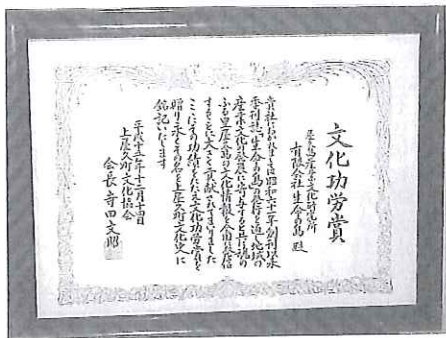 文化功労賞
屋久島産業文化研究所
有限会社生命の島 殿
貴社におかれましては昭和六十一年創刊以来
季刊誌「生命の島」の発行を通し地域の
産業文化の発展に寄与すると共に魂の
ふる里屋久島の文化情報を全国に発信
するなど大きく貢献されてまいりました
ここにその功績をたたえ文化功労賞を
贈り永くその名を上屋久町文化史に
銘記いたします
平成十三年十二月十四日
上屋久町文化協会
会長 寺田文昭